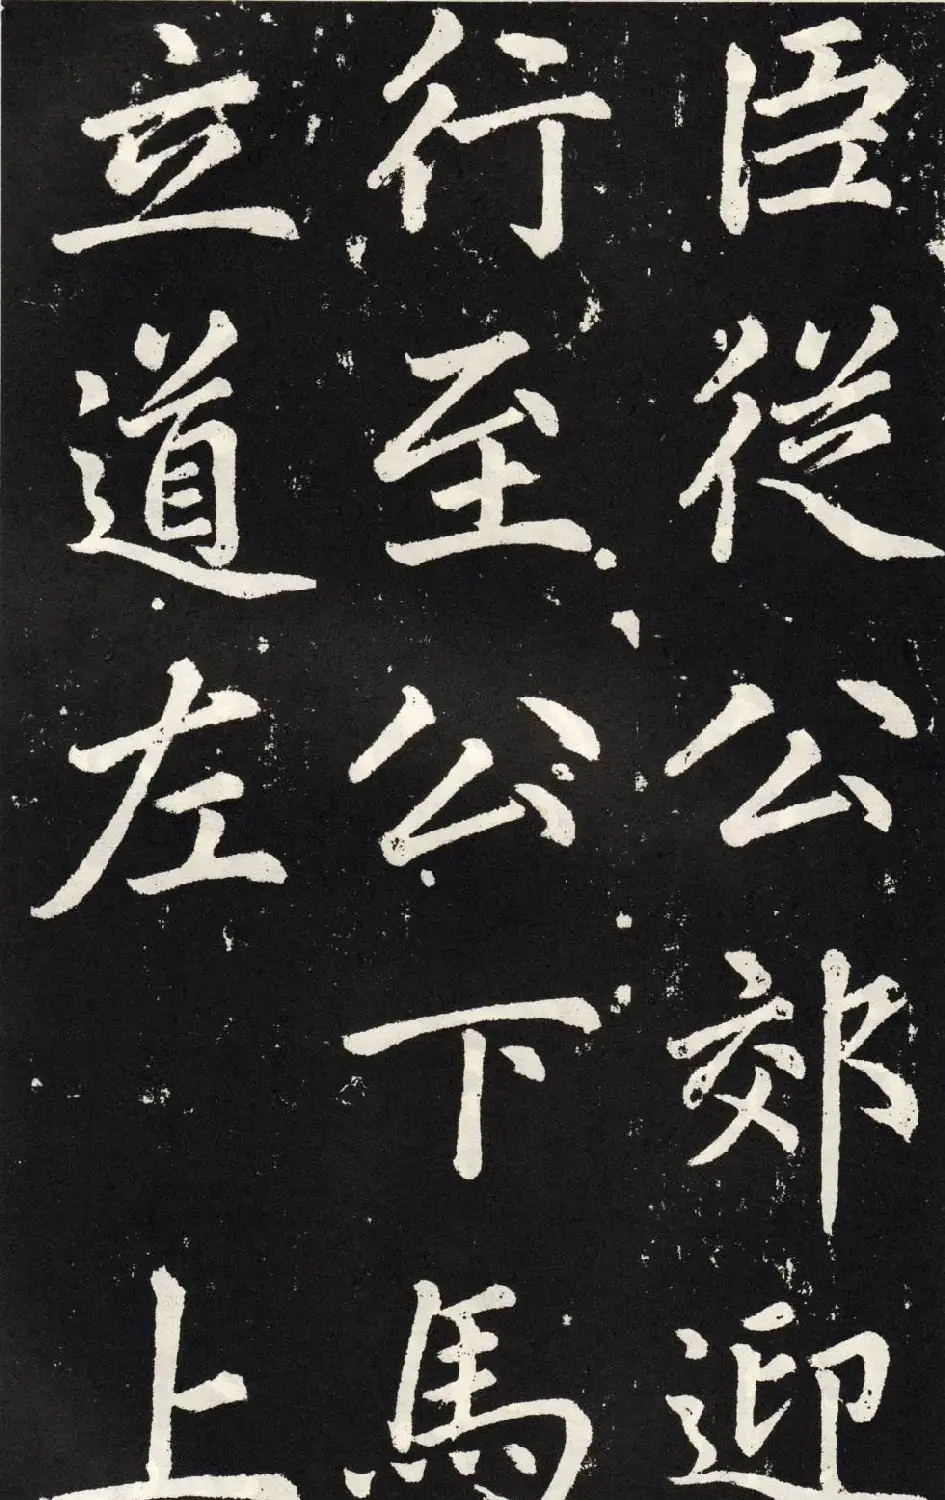 臣從公郊迎
行至公下馬
立道左上